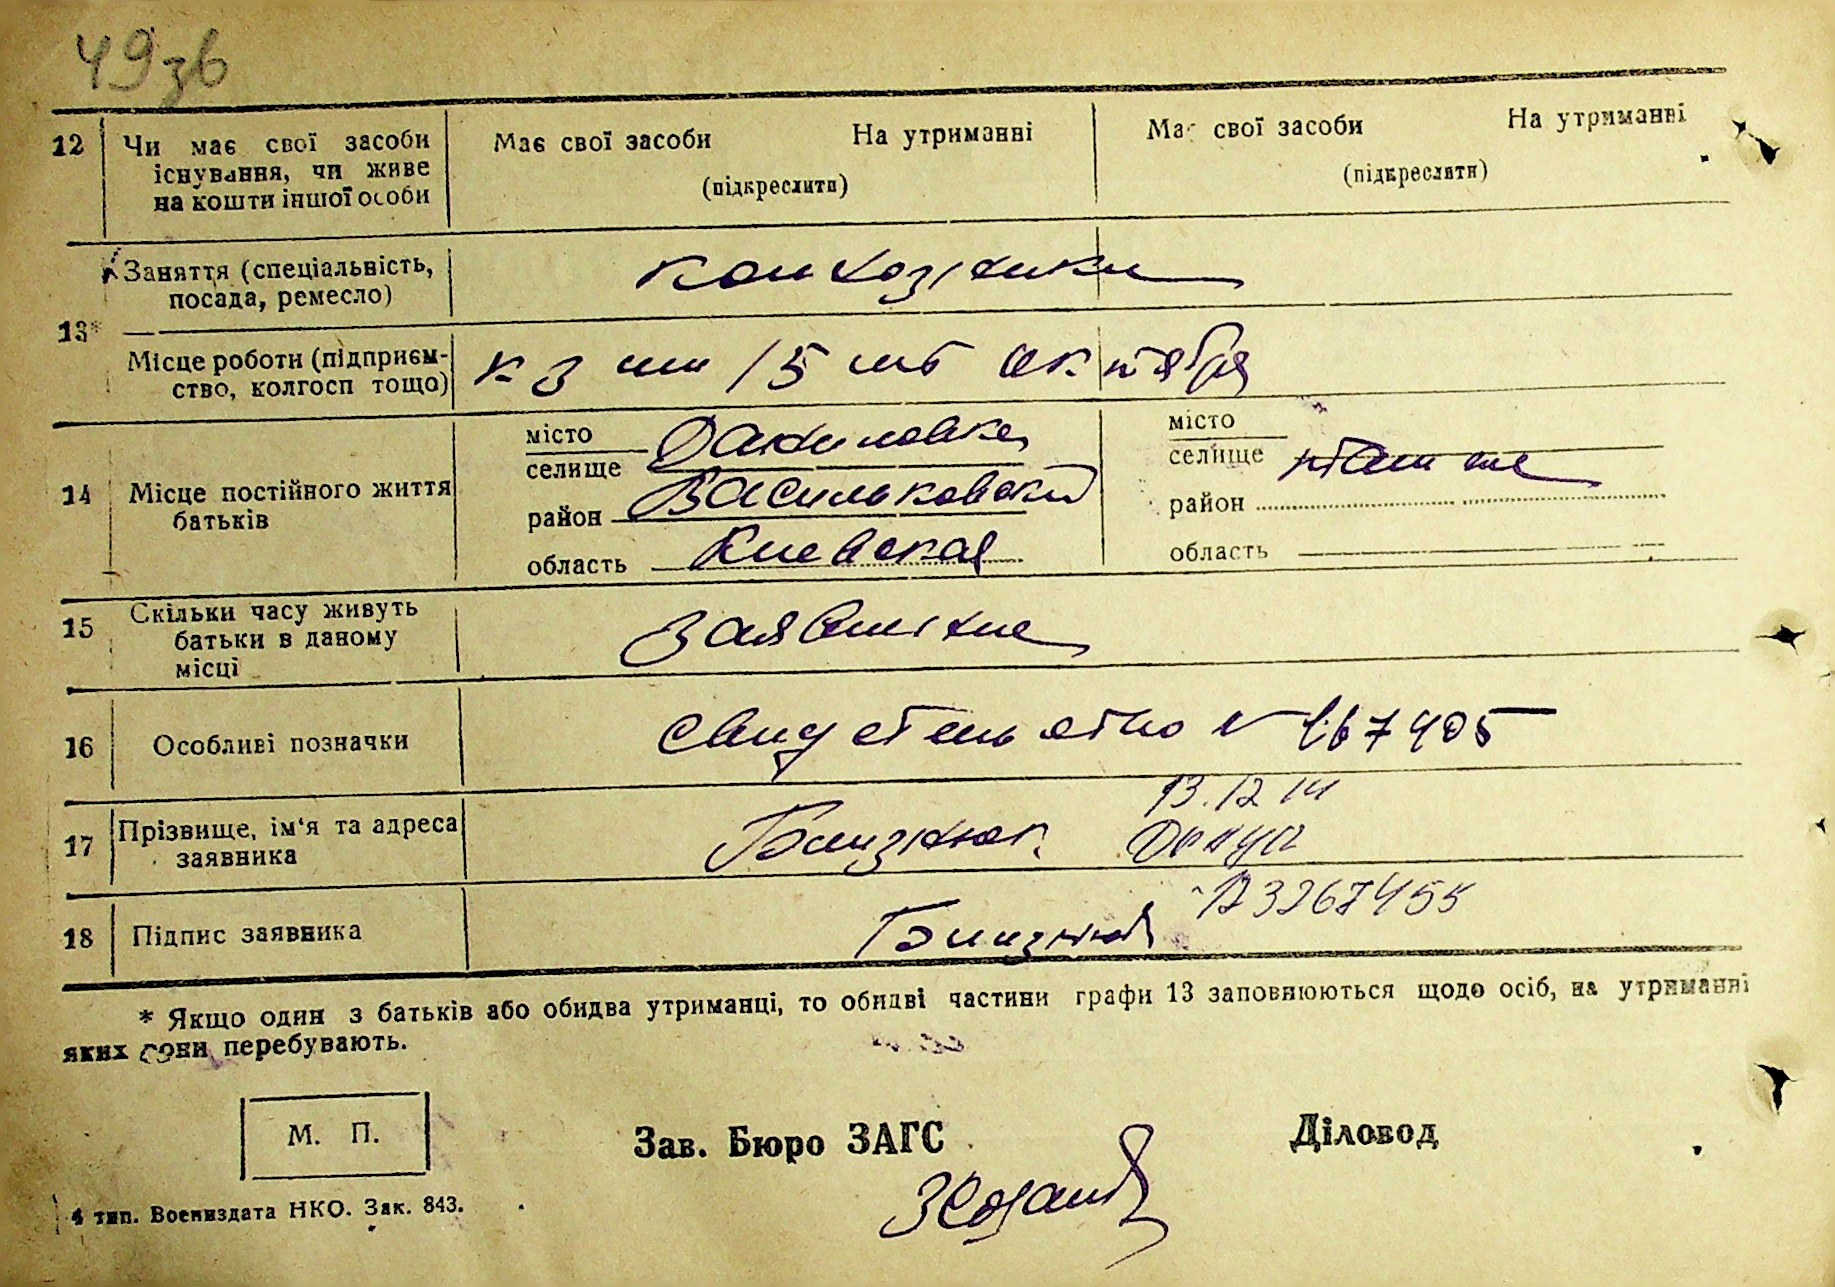 49зв
12 Чи має свої засоби існування, чи живе на кошти іншої особи
Має свої засоби На утриманні
(підкреслити)
Має свої засоби На утриманні
(підкреслити)
13*
Заняття (спеціальність, посада, ремесло)
колхозники
Місце роботи (підприємство, колгосп тощо)
к з им 15 ть октября
14 Місце постійного життя батьків
місто
селище Даниловка
район Васильковский
область Киевская
місто
селище там же
район
область
15 Скільки часу живуть батьки в даному місці
16 Особливі позначки
свидетельство № 167405
13.12
17 Прізвище, ім'я та адреса заявника
Близнюк
18 Підпис заявника
Близнюк
3267455
* Якщо один з батьків або обидва утриманці, то обидві частини графи 13 заповнюються щодо осіб, на утриманні
яких вони перебувають.
М. П.
Зав. Бюро ЗАГС
Діловод
4 тип. Воениздата НКО. Зак. 843.